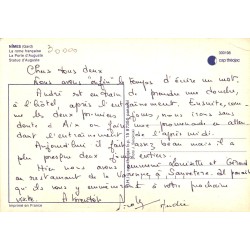 NÎMES (Gard)
La rome française
La Porte d'Auguste
Statue d'Auguste
000186
cap théojac
Chers tous deux
Nous avons "enfin" le temps d'écrire un mot,
André est en train de prendre une douche,
à l'hôtel, après l'entraînement. Ensuite, comme
les deux premiers jours, nous irons sans
doute à Aix ou faire une promenade en atten
dant l'entraînement de l'après midi.
Aujourd'hui il fait assez beau mais il a
plu presque deux jours
Nous avons pu emmener Louisette et Gérard
au restaurant de la à Sauveterre. Il paraît
que ils vous y emmèneront à votre prochaine
visite. A bientôt
André
Imprimé en France